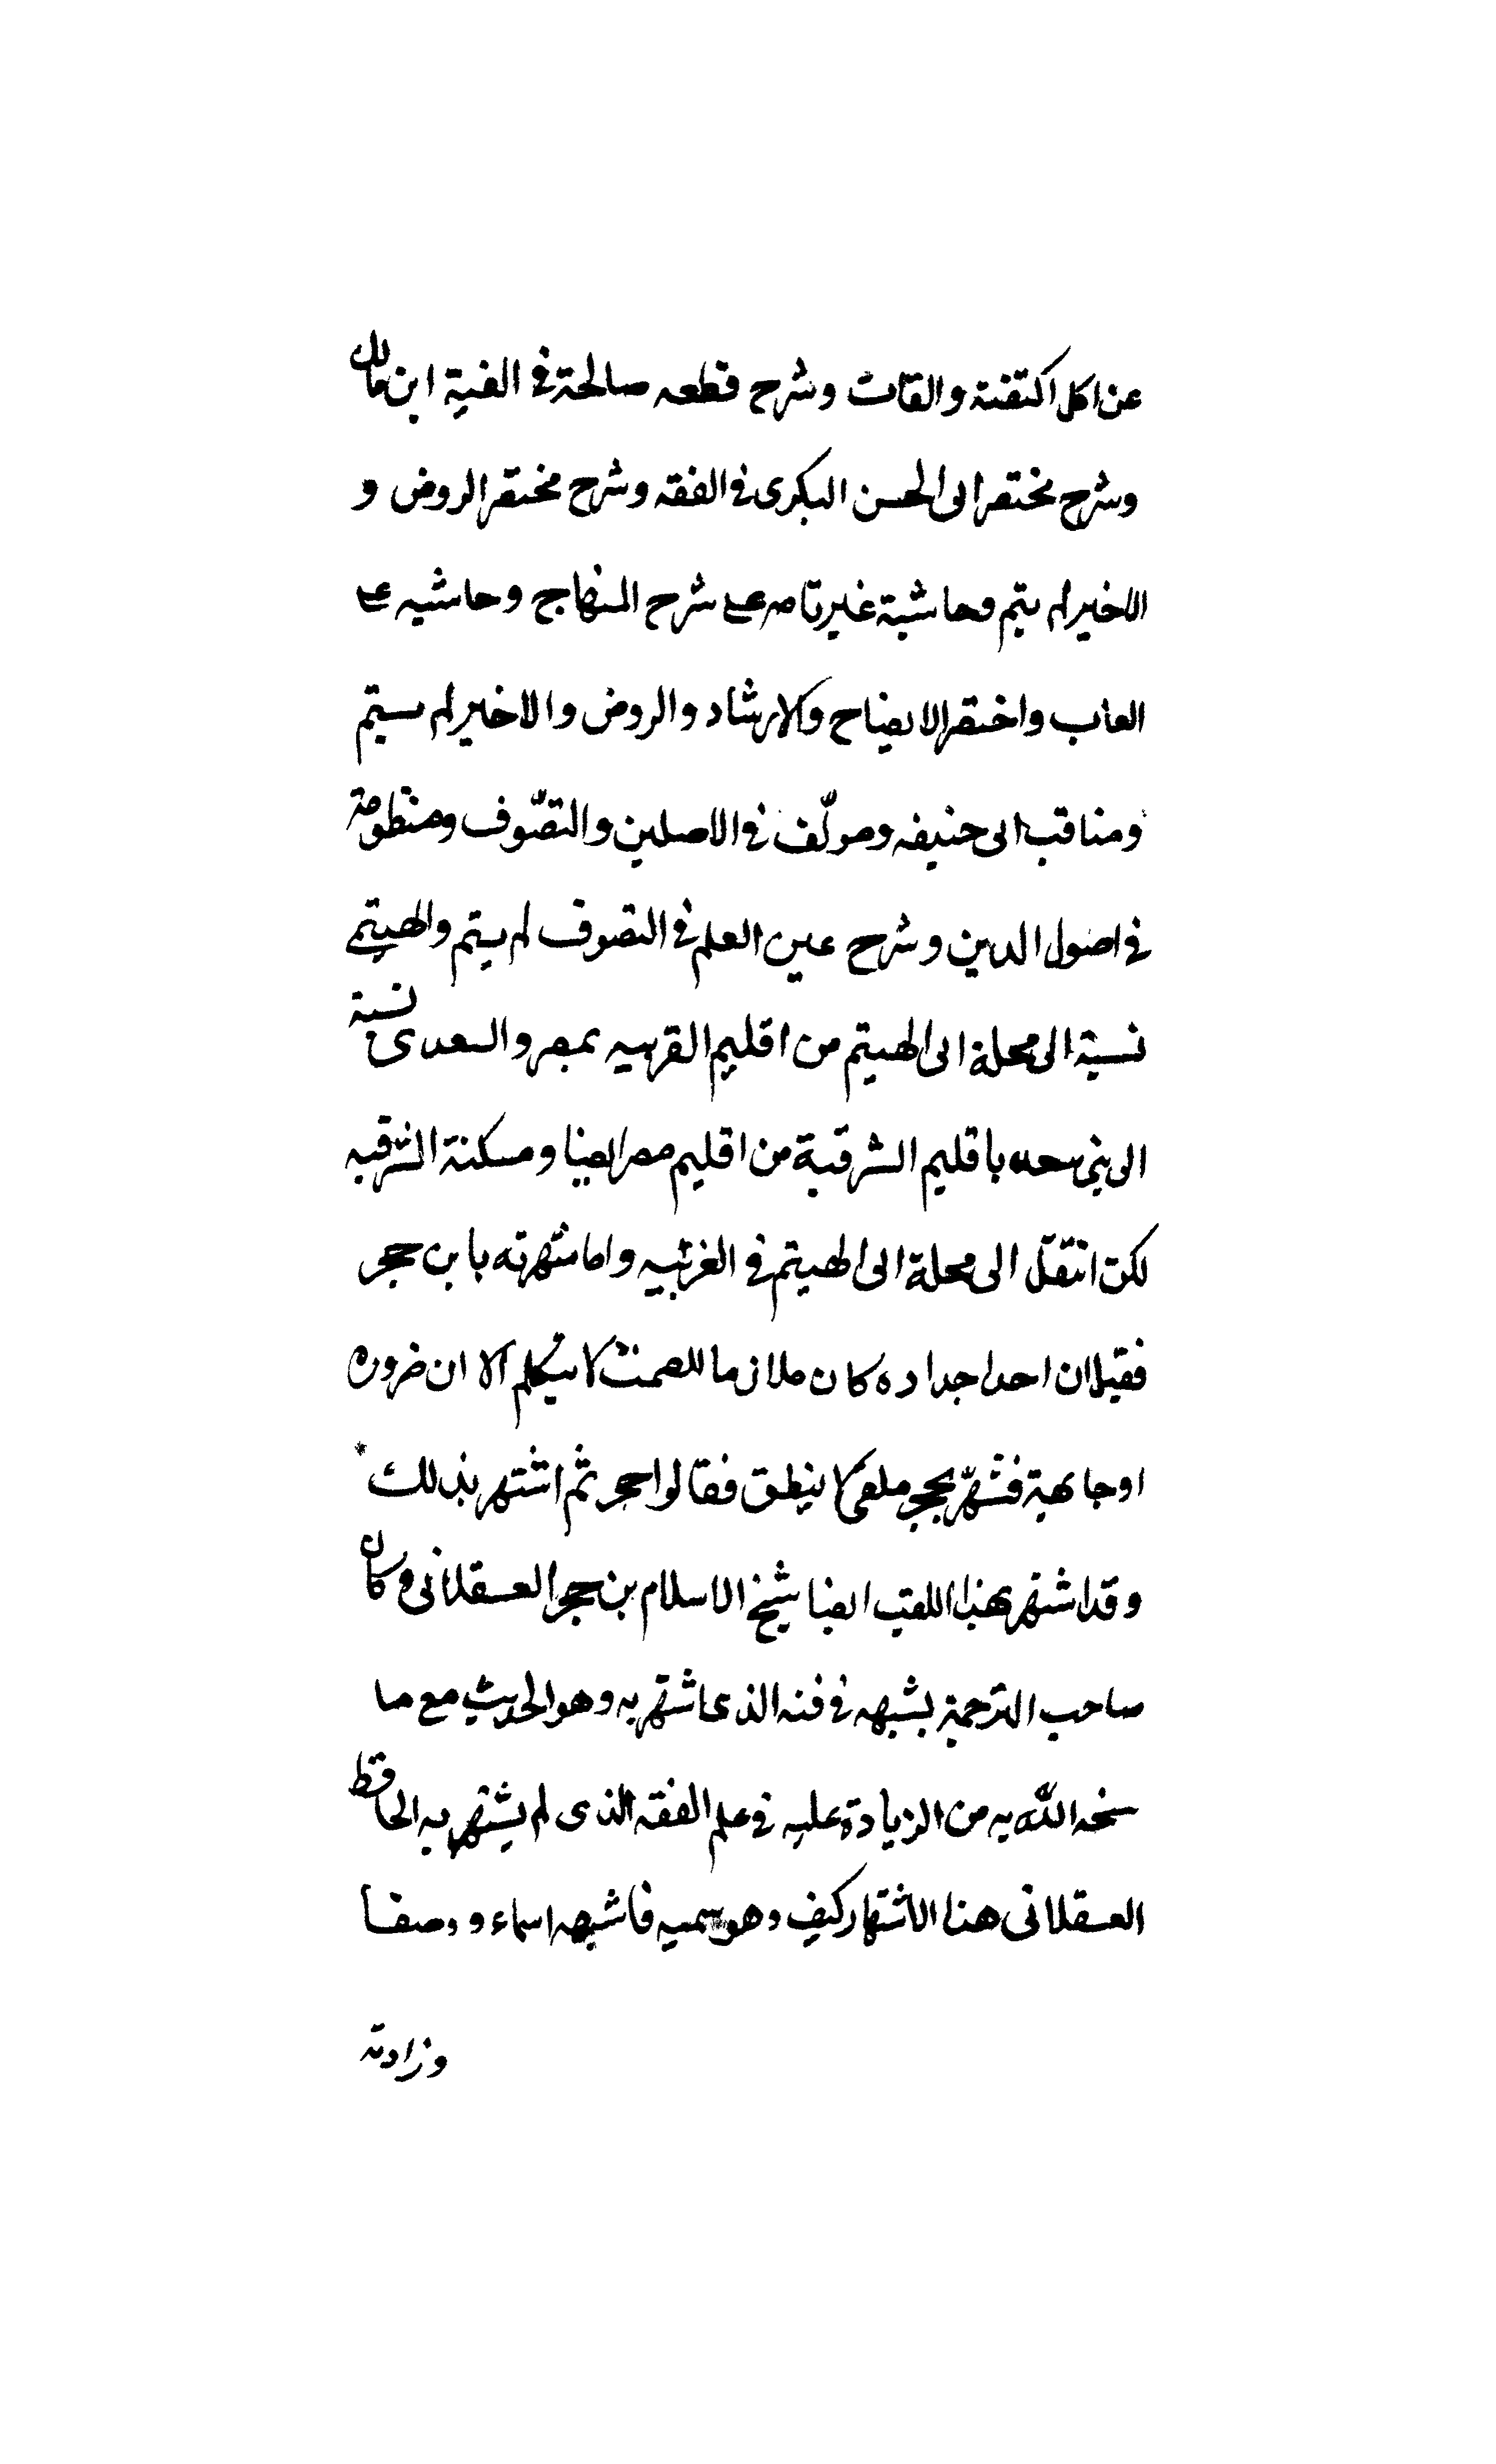 عن اكل اكتفتة والقات وشرح قطعه صالحة فى الفية ابن مالك
وشرح مختصر ابى الحسن البكرى فى الفقه وشرح مختصر الروض و
الاخير لم يتم وحاشية غير تامه على شرح المنهاج وحاشيه على
العاب واختصر الايضاح والارشاد والروض والاخير لم يستم
ومناقب ابى حنيفه ومولّف فى الاصلين والتصّوف ومنظومة
فى اصول الدين وشرح عين العلم فى التصوف لم يستم والهيتمى
نسبة الى محلة ابى الهيتم من اقليم الغربيه بمصر والسعدى نسبة
الى بنى سعد باقليم الشرقية من اقليم مصر ايضا ومسكنة الشرقيه
لكن انتقل الى محلة ابى الهيتم فى الغربيه واما شهرته بابن حجر
فقيل ان احد اجداده كان ملازما للصمت لا يتكلم الا ان ضروره
او حاجة فشهّر بحجر ملقى لا ينطق فقالوا حجر ثم اشتهر بذلك
وقد اشتهر بهذا اللقب ايضا شيخ الاسلام بن حجر العسقلانى وكان
صاحب الترجمة يشبهه فى فنه الذى اشتهر به وهو الحديث مع ما
منحه الله به من الزيادة عليه فى علم الفقه الذى لم يشتهر به الحافظ
العسقلانى هذا الاشتهار كيف وهو سميه فاشبهه اسماء و وصفا
وزادته